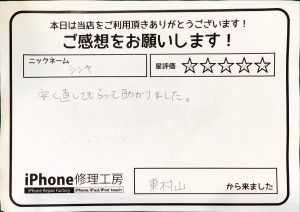 本日は当店をご利用頂きありがとうございます！
ご感想をお願いします！
ニックネーム
シンヤ
星評価 ☆☆☆☆☆
安く直してもらって助かりました。
iPhone修理工房
iPhone Repair Factory iPhone/iPad/iPod touch
東村山 から来ました